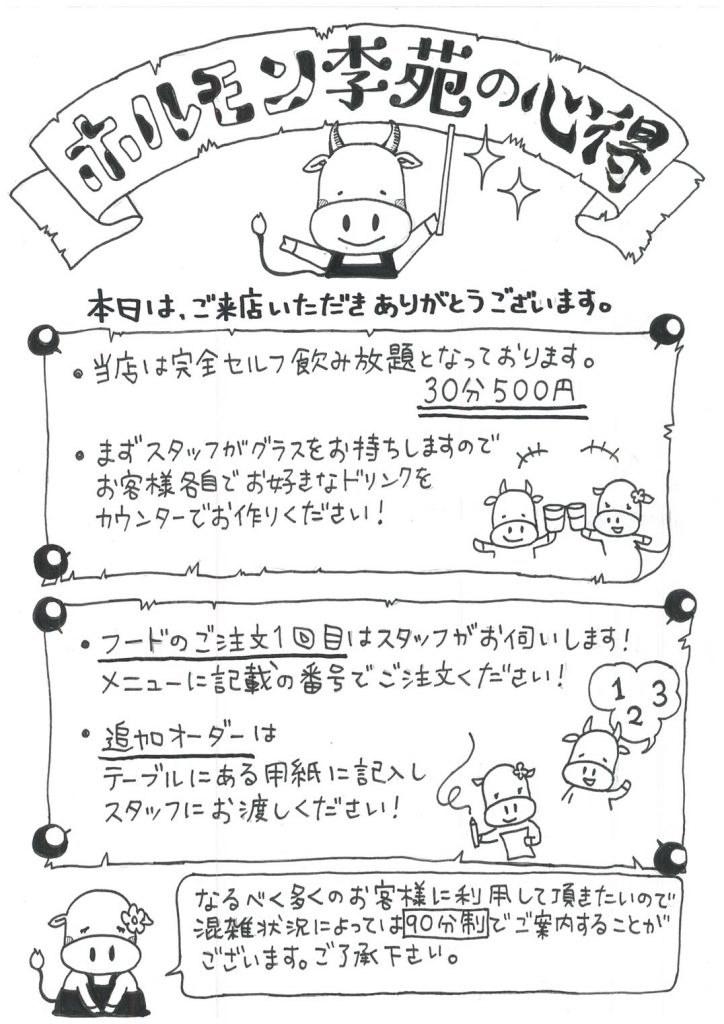 ホルモン李苑の心得
本日は、ご来店いただきありがとうございます。
・当店は完全セルフ飲み放題となっております。
30分500円
・まずスタッフがグラスをお持ちしますので
お客様各自でお好きなドリンクを
カウンターでお作りください!
・フードのご注文1回目はスタッフがお伺いします!
メニューに記載の番号でご注文ください!
1 2 3
・追加オーダーは
テーブルにある用紙に記入し
スタッフにお渡しください!
なるべく多くのお客様に利用して頂きたいので
混雑状況によっては90分制でご案内することが
ございます。ご了承下さい。